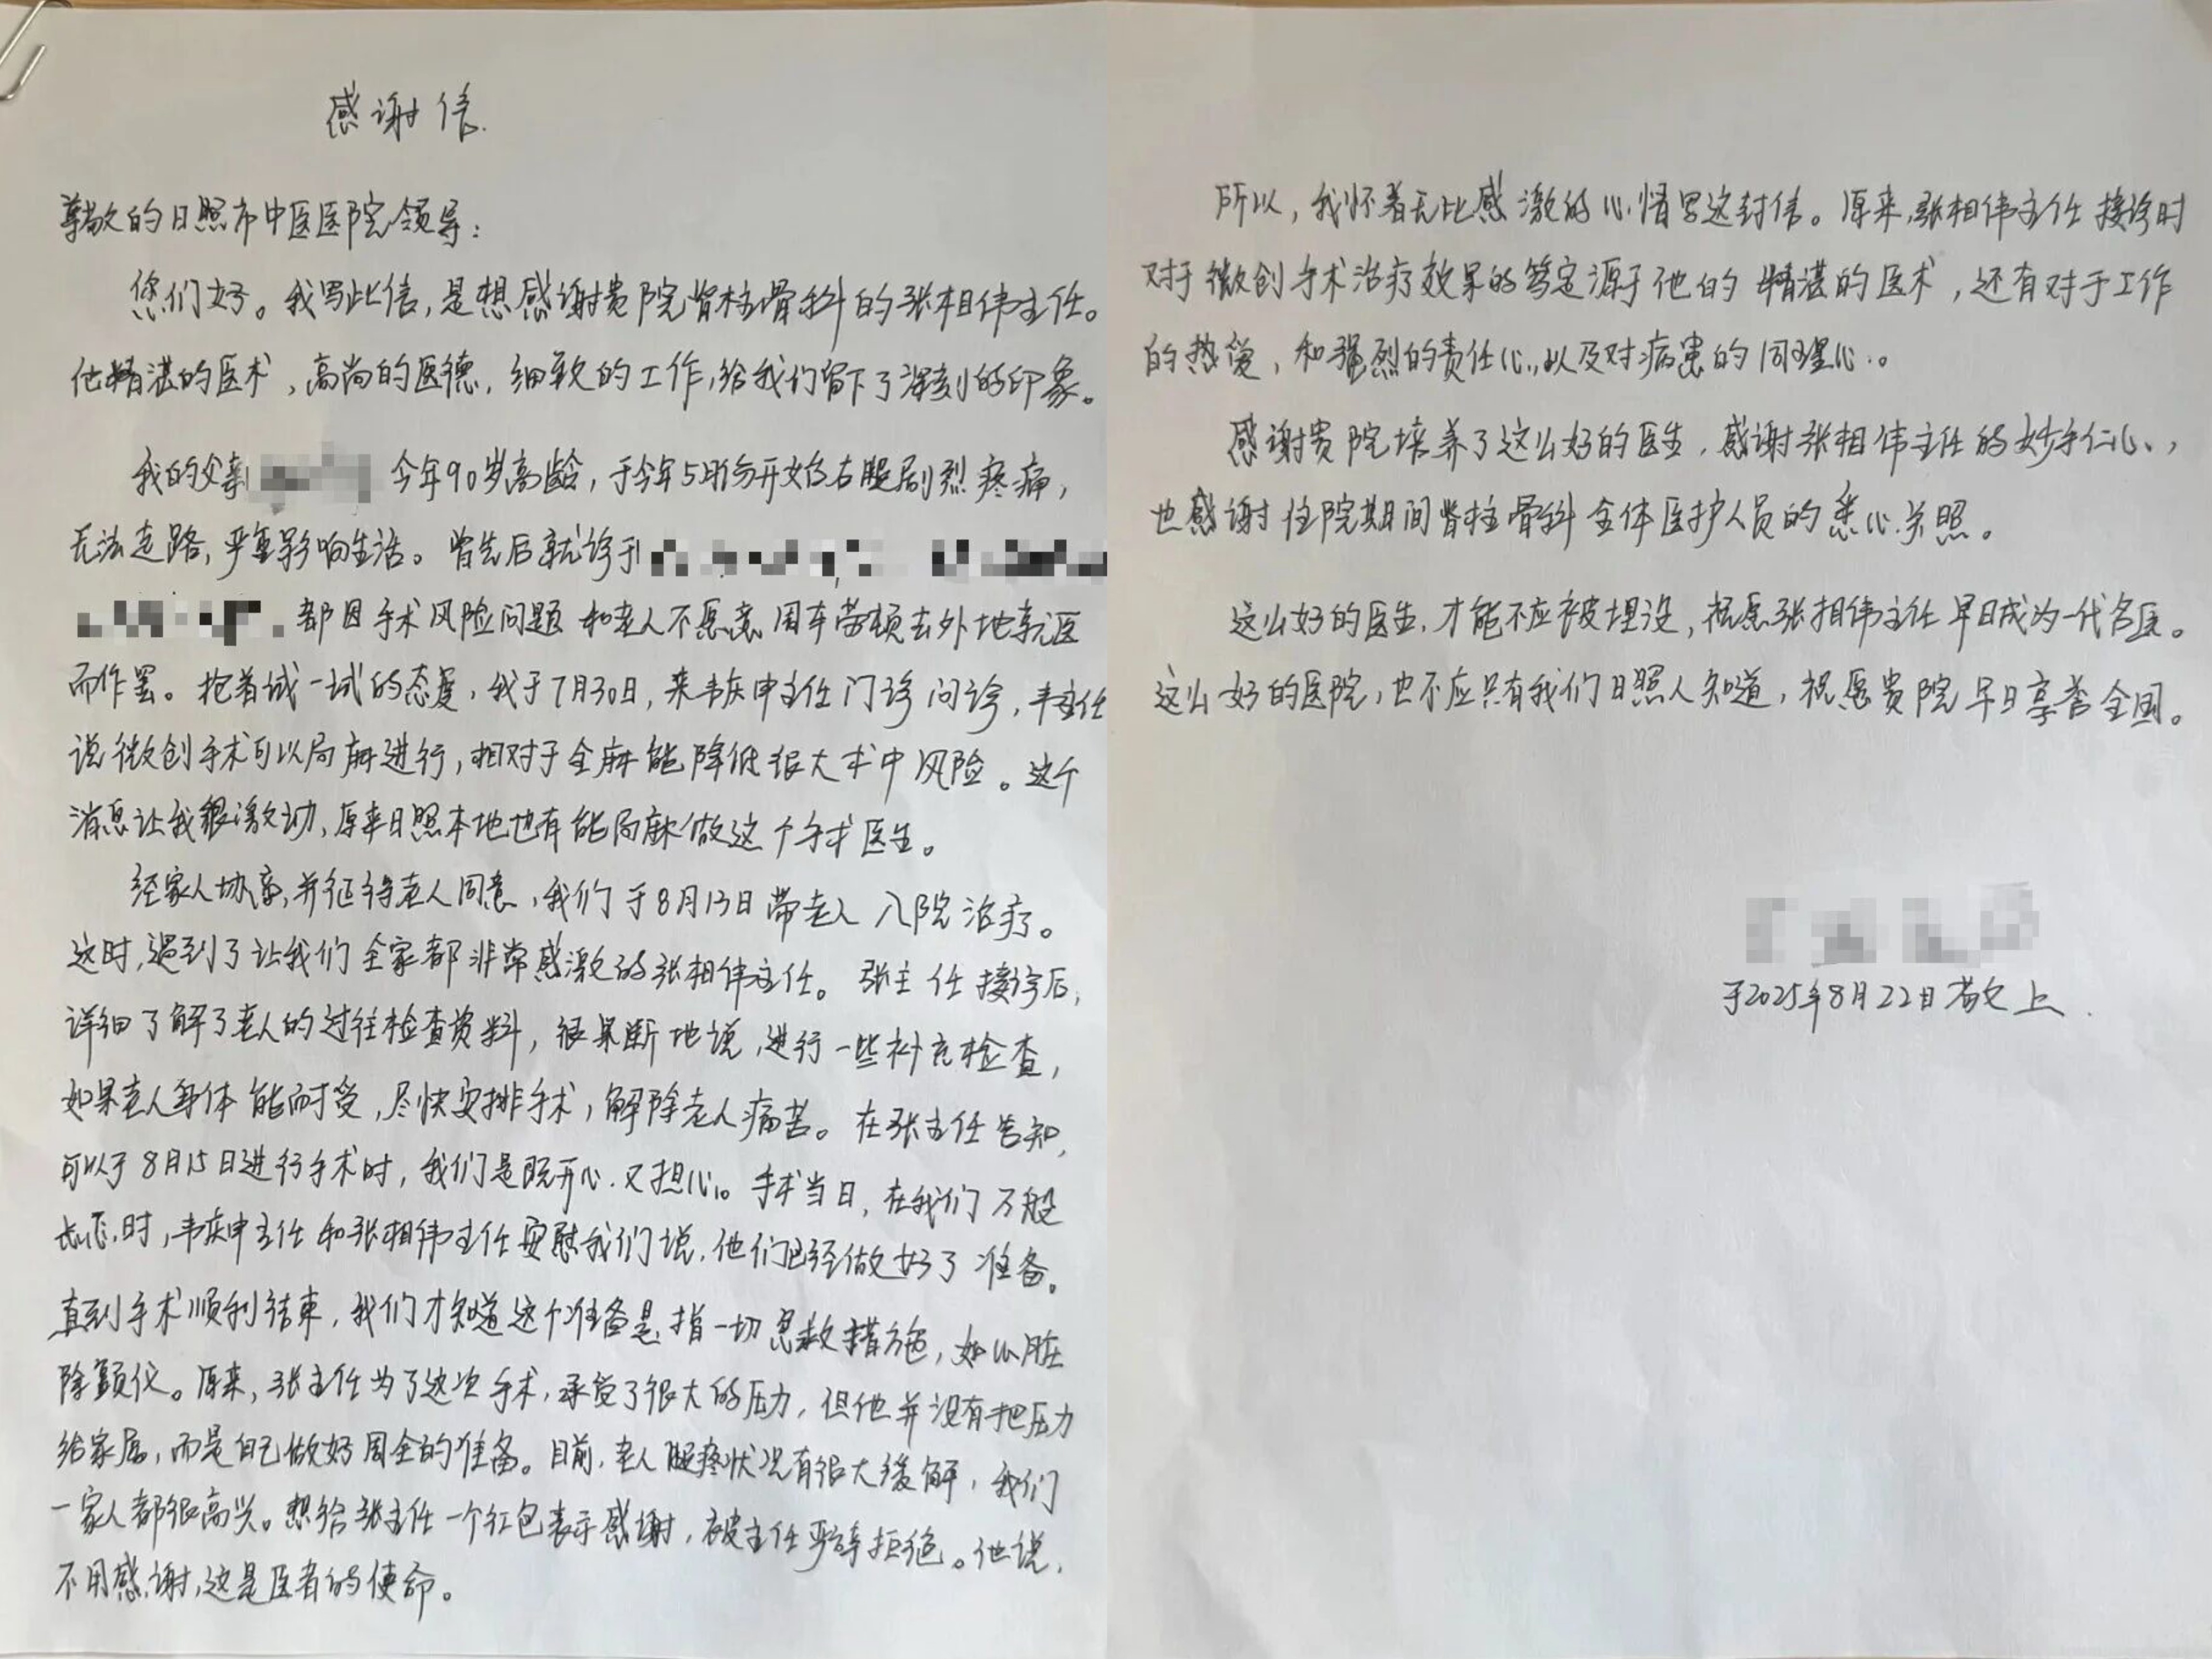 感谢信.
尊敬的日照市中医医院领导：
您们好。我写此信，是想感谢贵院脊柱骨科的张相伟主任。
他精湛的医术，高尚的医德，细致的工作，给我们留下了深刻的印象。
我的父亲 今年90岁高龄，于今年5月份开始右腿剧烈疼痛，
无法走路，严重影响生活。曾先后就诊于
，都因手术风险问题和老人不愿意周车劳顿去外地就医
而作罢。抱着试一试的态度，我于7月30日，来韦庆申主任门诊问诊，韦主任
说微创手术可以局麻进行，相对于全麻能降低很大术中风险。这个
消息让我很激动，原来日照本地也有能局麻做这个手术医生。
经家人协商，并征得老人同意，我们于8月13日带老人入院治疗。
这时，遇到了让我们全家都非常感激的张相伟主任。张主任接诊后，
详细了解了老人的过往检查资料，很果断地说，进行一些补充检查，
如果老人身体能耐受，尽快安排手术，解除老人痛苦。在张主任告知，
可以于8月15日进行手术时，我们是既开心又担心。手术当日，在我们万般
忐忑时，韦庆申主任和张相伟主任安慰我们说，他们已经做好了准备。
直到手术顺利结束，我们才知道这个准备是指一切急救措施，如心脏
除颤仪。原来，张主任为了这次手术，承受了很大的压力，但他并没有把压力
给家属，而是自己做好周全的准备。目前，老人腿疼状况有很大缓解，我们
一家人都很高兴。想给张主任一个红包表示感谢，被主任严辞拒绝。他说，
不用感谢，这是医者的使命。
所以，我怀着无比感激的心情写这封信。原来，张相伟主任接诊时
对于微创手术治疗效果的笃定源于他的精湛的医术，还有对于工作
的热爱，和强烈的责任心，以及对病患的同理心。
感谢贵院培养了这么好的医生，感谢张相伟主任的妙手仁心，
也感谢住院期间脊柱骨科全体医护人员的悉心关照。
这么好的医生，才能不应被埋没，祝愿张相伟主任早日成为一代名医。
这么好的医院，也不应只有我们日照人知道，祝愿贵院早日享誉全国。
于2025年8月22日敬上.